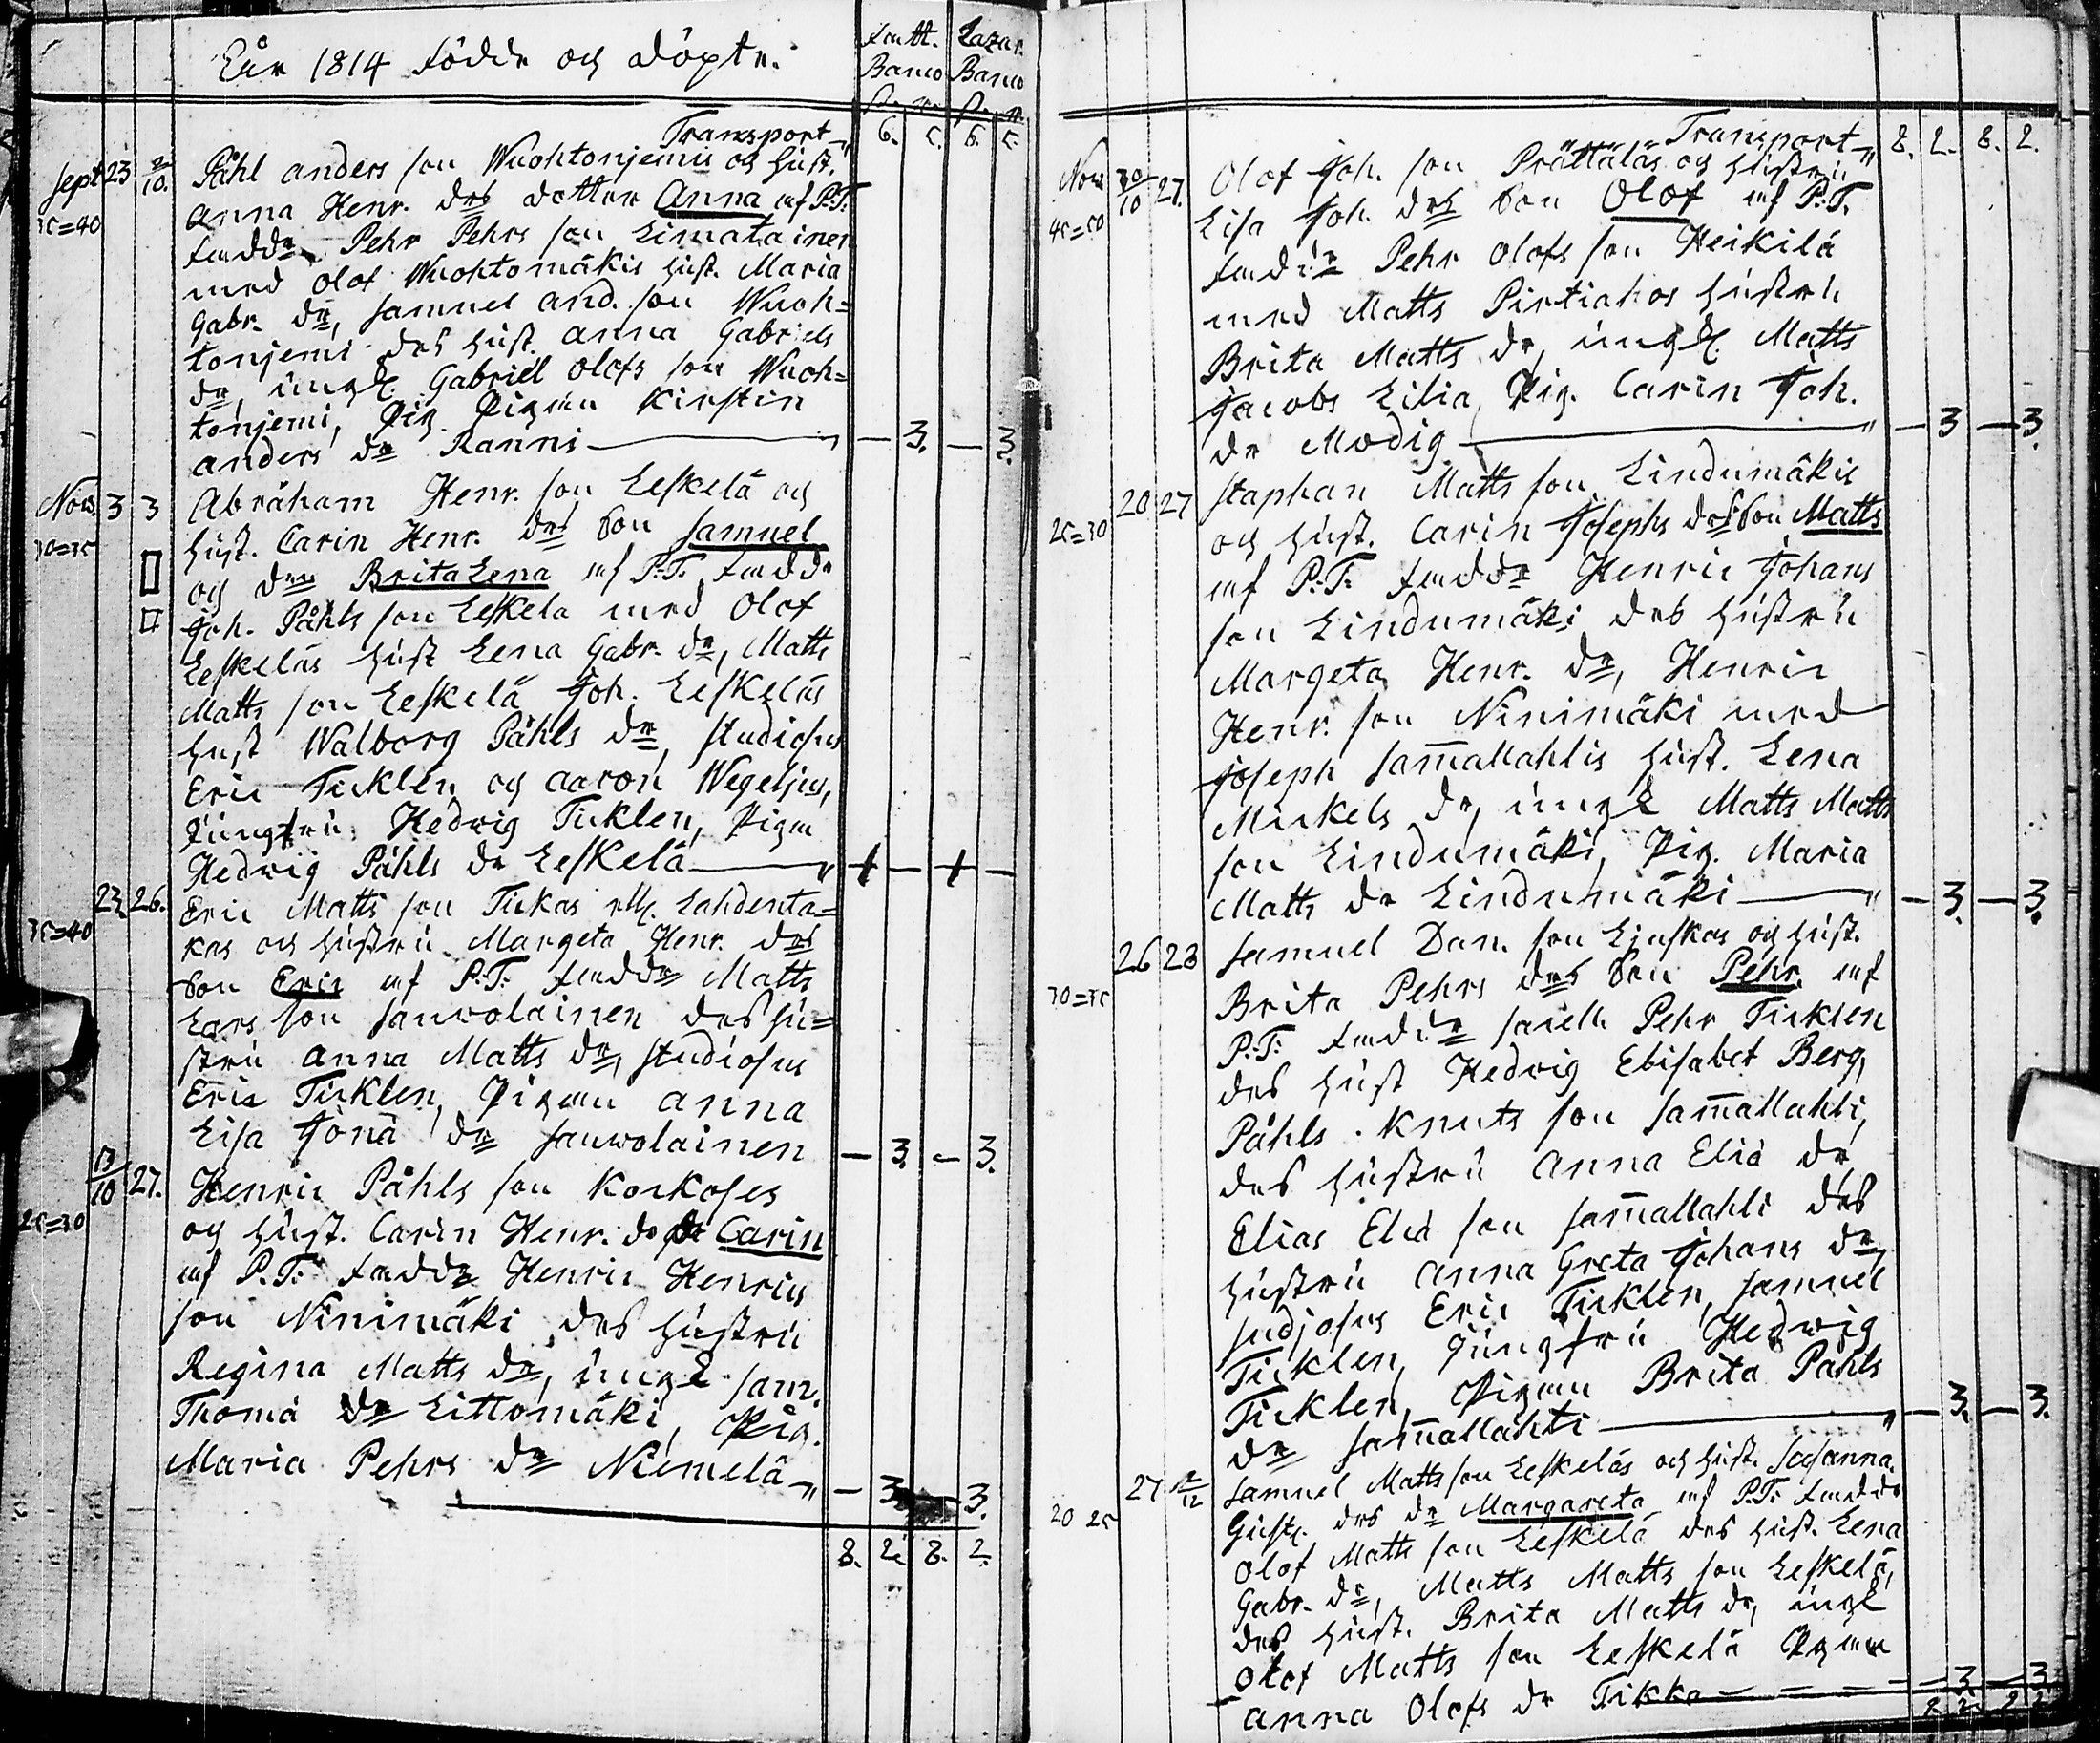 Åår 1814 födde och döpte.
Fatt. Banco Lazar. Banco
Transport 6. 5. 6. 5.
Sept 23 2/10. Påhl Anders son Wuohtonjemis och hust.
35=40 Anna Henr. drs dotter Anna af P.T.
fadd. Pehr Pehrs son Limatainen
med Olof Wuohtomäkis hust. Maria
Gabr. dr, Samuel And. son Wuoh=
tonjemi des hust. Anna Gabriels
dr, ungk. Gabriel Olofs son Wuoh=
tonjemi, Pigan Kirstin
Anders dr Ranni — 3. — 3.
Nov. 3 3 Abraham Henr. son Leskelä och
30=35 hust. Carin Henr. drs Son Samuel
och dr Brita Lena af P.T. fadd.
Joh. Påhls son Leskelä med Olof
Leskeläs hust Lena Gabr. dr, Matts
Matts son Leskelä Joh. Leskeläs
hust Walborg Påhls dr, Studiosus
Eric Ticklen och Aaron Wegelius,
Jungfru Hedwig Ticklen, Pigan
Hedwig Påhls dr Leskelä
22 26. Eric Matts son Tickas ell. Lahdenta=
35=40 kas och hustru Margeta Henr. drs
Son Eric af P.T. fadd. Matts
Lars son Sauwolainen des hu=
stru Anna Matts dr, Studiosus
Eric Ticklen, Pigan Anna
Lisa Jona dr Sauwolainen — 3. — 3.
13/10 27. Henric Påhls son Korkoses
25=30 och hust. Carin Henr. ds dr Carin
af P.T. fadd. Henric Henrics
son Ninimäki, des hustru
Regina Matts dr, ungk Sam.
Thomä dr Littomäki, Pig.
Maria Pehrs dr Niemelä — 3. — 3.
8. 2. 8. 2.
Transport 8. 2. 8. 2.
Nov 30/10 27. Olof Joh. son Prättäläs och hustru
45=50 Lisa Joh. drs Son Olof af P.T.
fadd. Pehr Olofs son Heikilä
med Matts Pirtiahos hustru
Brita Matts dr, ungk. Matts
Jacobs Lilia, Pig. Carin Joh.
dr Modig — 3 — 3.
20 27 Staphan Matts son Lindumäkis
25=30 och hust. Carin Josephs drs Son Matts
af P.T. fadd. Henric Johans
son Lindumäki des hustru
Margeta Henr. dr, Henric
Henr. son Ninimäki med
Joseph Samallahtis hust. Lena
Mickels dr, ungk Matts Matts
son Lindumäki, Pig. Maria
Matts dr Lindumäki — 3. — 3.
26 28 Samuel Dan. son Liuskas och hust.
30=35 Brita Pehrs drs Son Pehr af
P.T. fadd. Pehr Ticklen
des hust Hedwig Elisabet Berg,
Påhls Knuts son Samallahti,
des hustru Anna Elia dr,
Elias Elia son Samallahti des
hustru Anna Greta Johans dr,
Sudjosus Eric Ticklen, Samuel
Ticklen, Jungfru Hedwig
Ticklen, Pigan Brita Påhls
dr Samallahti — 3. — 3.
27 2/12 Samuel Matts son Leskeläs och hust. Susanna
20 25 Gust. drs dr Margareta af P.T. fadd.
Olof Matts son Leskelä des hust. Lena
Gabr. dr, Matts Matts son Leskelä,
des hust. Brita Matts dr, ungk
Olof Matts son Leskelä Pigan
Anna Olofs dr Tikka — 3 — 3